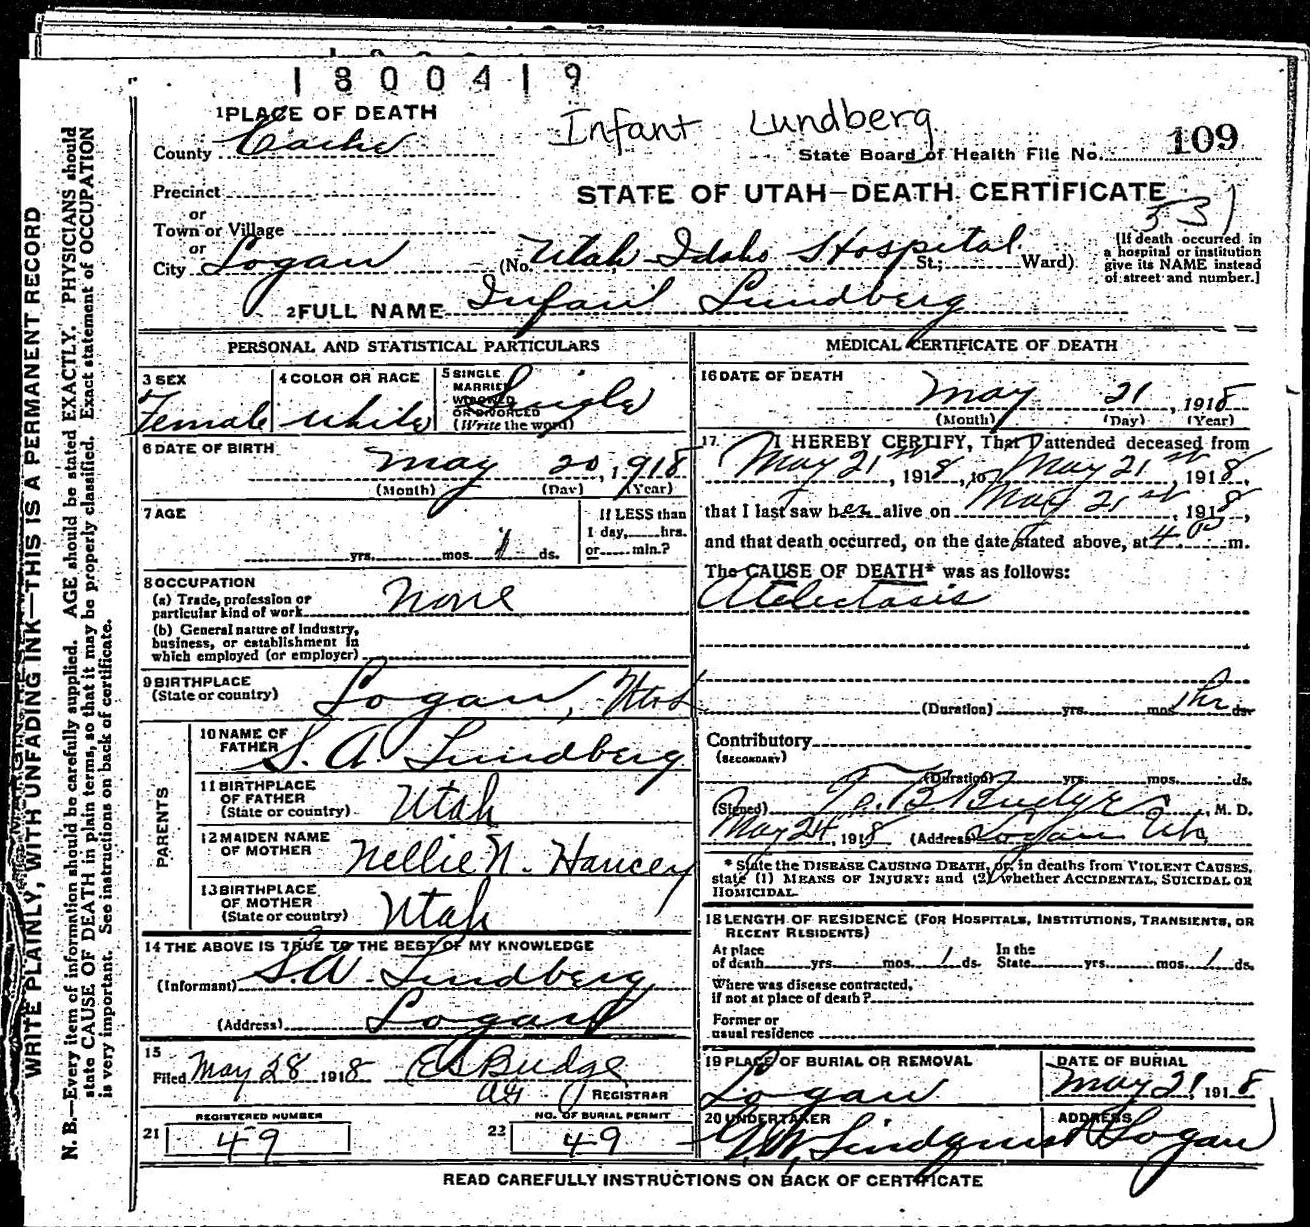 1800419
1 PLACE OF DEATH
Infant Lundberg
County Cache
State Board of Health File No. 109
Precinct
STATE OF UTAH—DEATH CERTIFICATE
531
or
Town or Village
or
City Logan (No. Utah Idaho Hospital St.; Ward)
[If death occurred in
a hospital or institution
give its NAME instead
of street and number.]
2 FULL NAME Infant Lundberg
PERSONAL AND STATISTICAL PARTICULARS
3 SEX
Female
4 COLOR OR RACE
White
5 SINGLE
MARRIED
WIDOWED
OR DIVORCED
(Write the word)
Single
6 DATE OF BIRTH
May 20, 1918
(Month) (Day) (Year)
7 AGE
yrs. mos. 1 ds.
If LESS than
1 day, hrs.
or min.?
8 OCCUPATION
(a) Trade, profession or
particular kind of work None
(b) General nature of industry,
business, or establishment in
which employed (or employer)
9 BIRTHPLACE
(State or country) Logan, Utah
PARENTS
10 NAME OF
FATHER S. A. Lundberg
11 BIRTHPLACE
OF FATHER
(State or country) Utah
12 MAIDEN NAME
OF MOTHER Nellie N. Hancey
13 BIRTHPLACE
OF MOTHER
(State or country) Utah
14 THE ABOVE IS TRUE TO THE BEST OF MY KNOWLEDGE
(Informant) S.A. Lundberg
(Address) Logan
15
Filed May 28 1918 Budge
REGISTRAR
REGISTERED NUMBER
21 49
NO. OF BURIAL PERMIT
22 49
MEDICAL CERTIFICATE OF DEATH
16 DATE OF DEATH
May 21, 1918
(Month) (Day) (Year)
17. I HEREBY CERTIFY, That I attended deceased from
May 21st, 1918, to May 21st, 1918,
that I last saw her alive on May 21st, 1918,
and that death occurred, on the date stated above, at 4 m.
The CAUSE OF DEATH* was as follows:
Atelectasis
(Duration) yrs. mos. 1 hr ds.
Contributory
(SECONDARY)
(Duration) yrs. mos. ds.
(Signed) B Budge, M. D.
May 24, 1918 (Address) Logan Ut
* State the DISEASE CAUSING DEATH, or, in deaths from VIOLENT CAUSES,
state (1) MEANS OF INJURY; and (2) whether ACCIDENTAL, SUICIDAL OR
HOMICIDAL.
18 LENGTH OF RESIDENCE (FOR HOSPITALS, INSTITUTIONS, TRANSIENTS, OR
RECENT RESIDENTS)
At place
of death yrs. mos. 1 ds.
In the
State yrs. mos. 1 ds.
Where was disease contracted,
if not at place of death?
Former or
usual residence
19 PLACE OF BURIAL OR REMOVAL
Logan
DATE OF BURIAL
May 21, 1918
20 UNDERTAKER
Lindquist
ADDRESS
Logan
READ CAREFULLY INSTRUCTIONS ON BACK OF CERTIFICATE
WRITE PLAINLY, WITH UNFADING INK—THIS IS A PERMANENT RECORD
N. B.—Every item of information should be carefully supplied. AGE should be stated EXACTLY. PHYSICIANS should
state CAUSE OF DEATH in plain terms, so that it may be properly classified. Exact statement of OCCUPATION
is very important. See instructions on back of certificate.